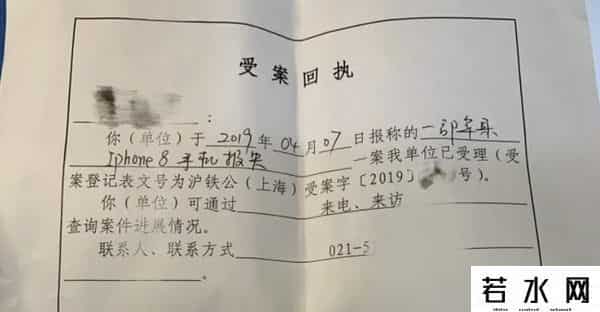 受案回执
：
你（单位）于 2019 年 04 月 07 日报称的 一部苹果
Iphone 8 手机报失 一案我单位已受理（受
案登记表文号为沪铁公（上海）受案字〔2019〕 号）。
你（单位）可通过 来电、来访
查询案件进展情况。
联系人、联系方式 021-5
。
若水网